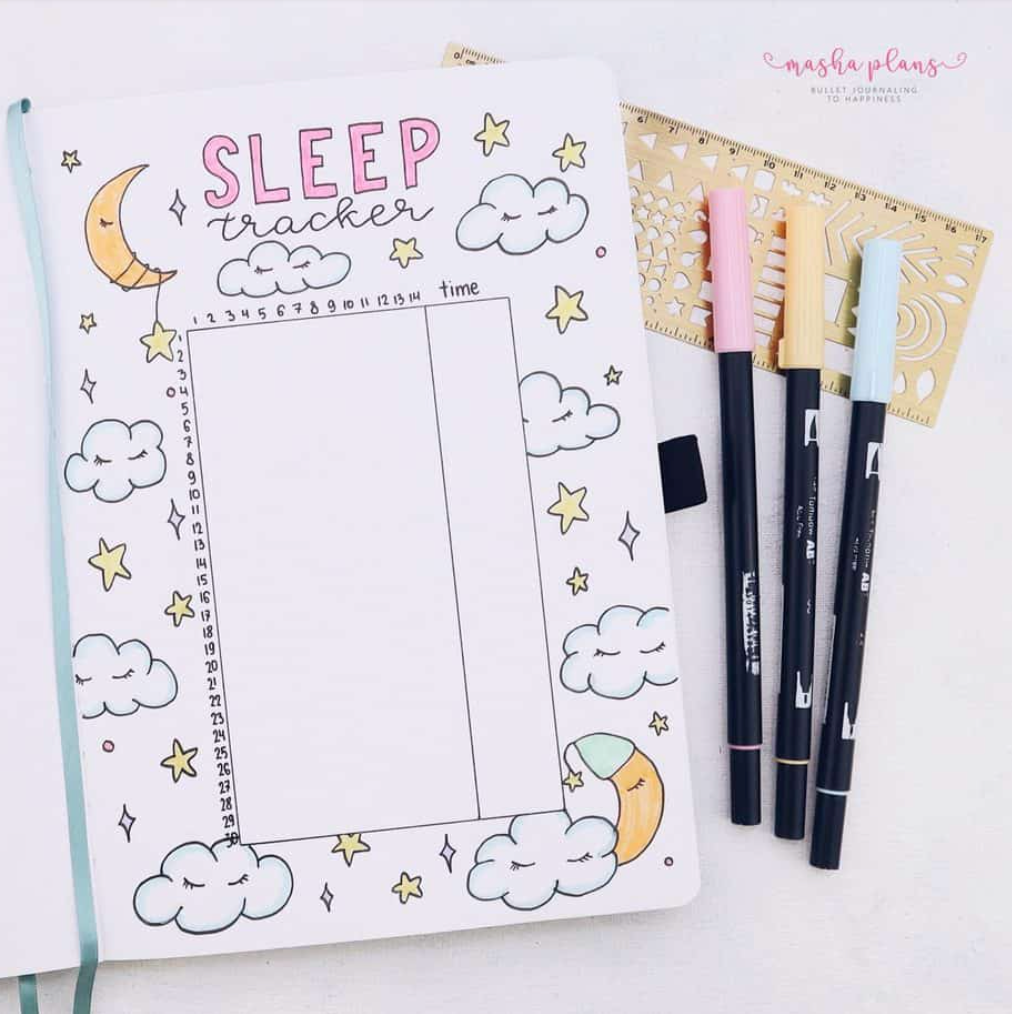 masha plans
BULLET JOURNALING
TO HAPPINESS
SLEEP
tracker
time
1 2 3 4 5 6 7 8 9 10 11 12 13 14
1
2
3
4
5
6
7
8
9
10
11
12
13
14
15
16
17
18
19
20
21
22
23
24
25
26
27
28
29
30
6 7 8 9 10 11 12 13 14 15 16 17
AB
AB